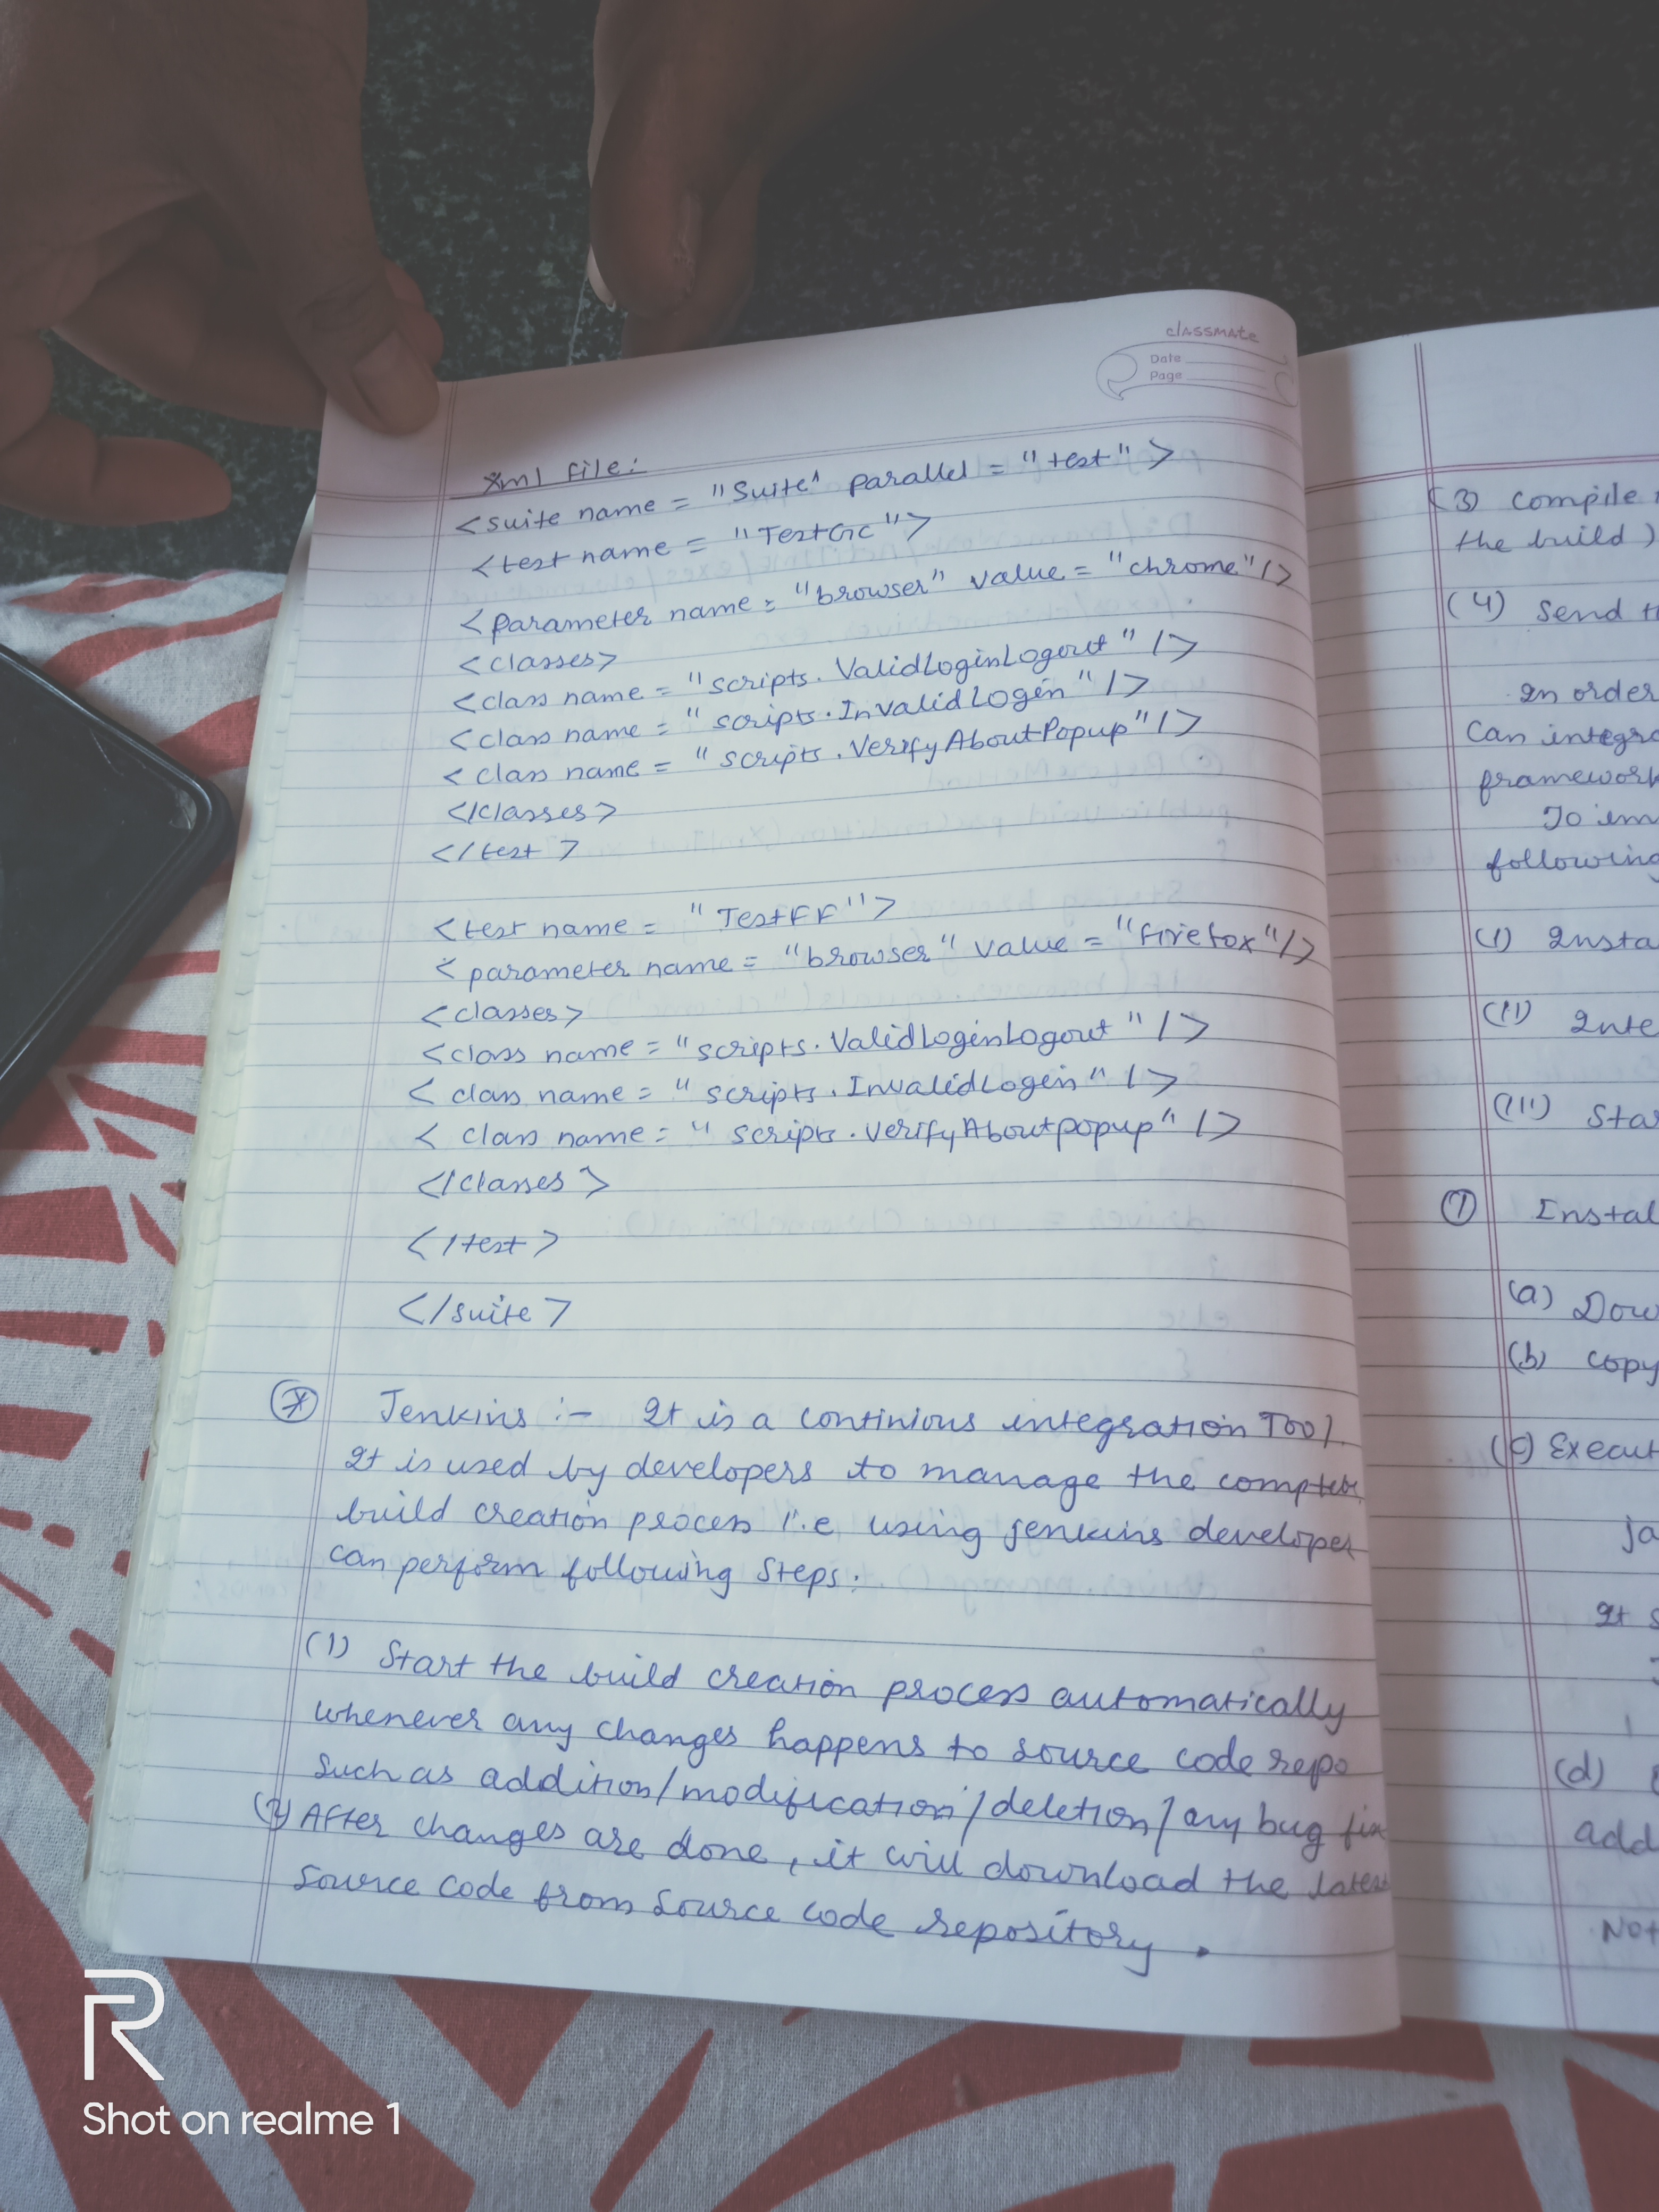 classmate
Date
Page
xml file:
<suite name = "Suite" parallel = "test" >
<test name = "TestGC">
<parameter name = "browser" value = "chrome"/>
<classes>
<class name = "scripts.ValidLoginLogout" />
<class name = "scripts.InvalidLogin" />
<class name = "scripts.VerifyAboutPopup" />
</classes>
</test >
<test name = "TestFF">
<parameter name = "browser" value = "firefox"/>
<classes>
<class name = "scripts.ValidLoginLogout" />
< class name = "scripts.InvalidLogin" />
< class name = "scripts.VerifyAboutpopup" />
</classes >
</test>
</suite>
Jenkins :- It is a continious integration Tool.
It is used by developers to manage the complete
build creation process i.e using jenkins developer
can perform following steps:
(1) Start the build creation process automatically
whenever any changes happens to source code repo
such as addition/modification/deletion/any bug fix
(2) After changes are done, it will download the latest
source code from source code repository.
(3) compile
the build)
(4) Send
In order
Can
framework
To
following
(I)
(II)
(III)
(7)
(a)
(b) copy
(c)
It
(d)
add
R
Shot on realme 1